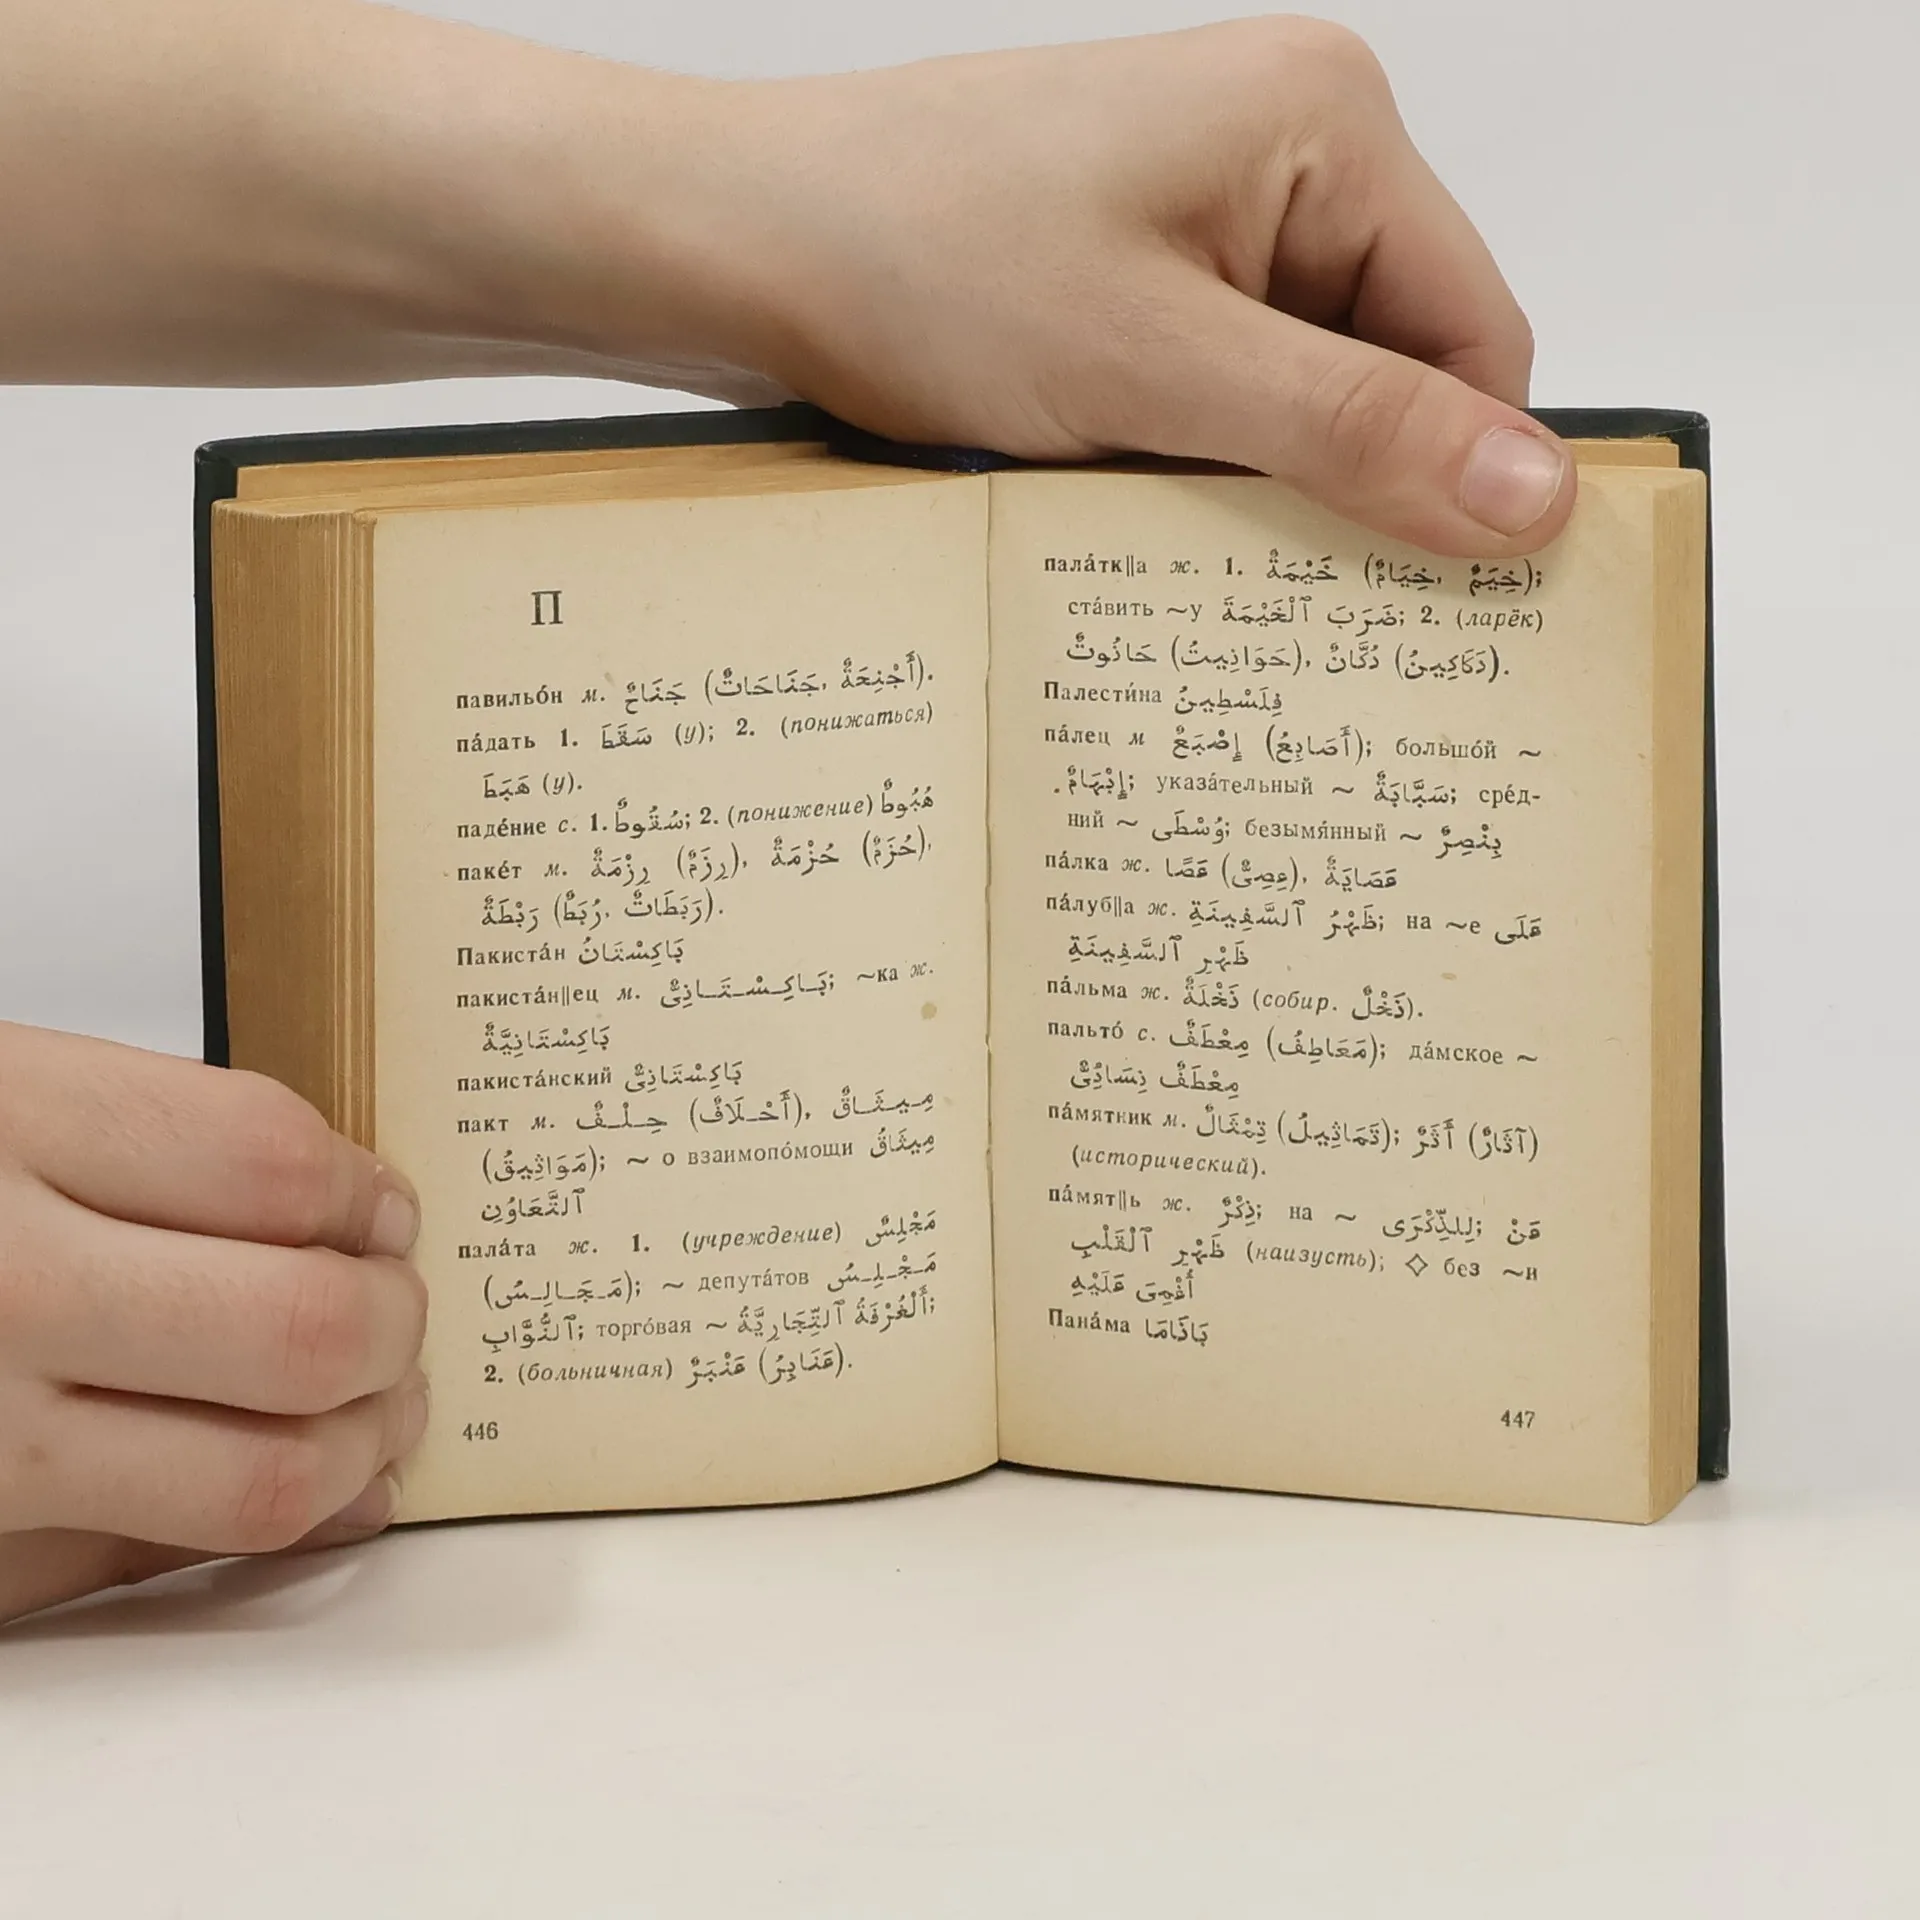 П
павильо́н м. جَنَاحٌ (جَنَاحَاتٌ، أَجْنِحَةٌ).
па́дать 1. سَقَطَ (у); 2. (понижаться)
هَبَطَ (у).
паде́ние с. 1. سُقُوطٌ; 2. (понижение) هُبُوطٌ
паке́т м. رِزْمَةٌ (رِزَمٌ), حُزْمَةٌ (حُزَمٌ),
رَبْطَةٌ (رُبَطٌ، رَبَطَاتٌ).
Пакиста́н بَاكِسْتَانُ
пакиста́н||ец м. بَاكِسْتَانِىٌّ; ~ка ж.
بَاكِسْتَانِيَّةٌ
пакиста́нский بَاكِسْتَانِىٌّ
пакт м. حِلْفٌ (أَحْلَافٌ), مِيثَاقٌ
(مَوَاثِيقُ); ~ о взаимопо́мощи مِيثَاقُ
ٱلتَّعَاوُنِ
пала́та ж. 1. (учреждение) مَجْلِسٌ
(مَجَالِسُ); ~ депута́тов مَجْلِسُ
ٱلنُّوَّابِ; торго́вая ~ أَلْغُرْفَةُ ٱلتِّجَارِيَّةُ;
2. (больничная) عَنْبَرٌ (عَنَابِرُ).
446
пала́тк||а ж. 1. خَيْمَةٌ (خِيَامٌ، خِيَمٌ);
ста́вить ~у ضَرَبَ ٱلْخَيْمَةَ; 2. (ларёк)
حَانُوتٌ (حَوَانِيتُ), دُكَّانٌ (دَكَاكِينُ).
Палести́на فِلَسْطِينُ
па́лец м إِصْبَعٌ (أَصَابِعُ); большо́й ~
إِبْهَامٌ; указа́тельный ~ سَبَّابَةٌ; сре́д-
ний ~ وُسْطَى; безымя́нный ~ بِنْصِرٌ
па́лка ж. عَصًا (عِصِىٌّ), عَصَايَةٌ
па́луб||а ж. ظَهْرُ ٱلسَّفِينَةِ; на ~е عَلَى
ظَهْرِ ٱلسَّفِينَةِ
па́льма ж. نَخْلَةٌ (собир. نَخْلٌ).
пальто́ с. مِعْطَفٌ (مَعَاطِفُ); да́мское ~
مِعْطَفٌ نِسَائِىٌّ
па́мятник м. تِمْثَالٌ (تَمَاثِيلُ); أَثَرٌ (آثَارٌ)
(исторический).
па́мят||ь ж. ذِكْرٌ; на ~ لِلذِّكْرَى; عَنْ
ظَهْرِ ٱلْقَلْبِ (наизусть); ◇ без ~и
أُغْمِىَ عَلَيْهِ
Пана́ма بَانَامَا
447